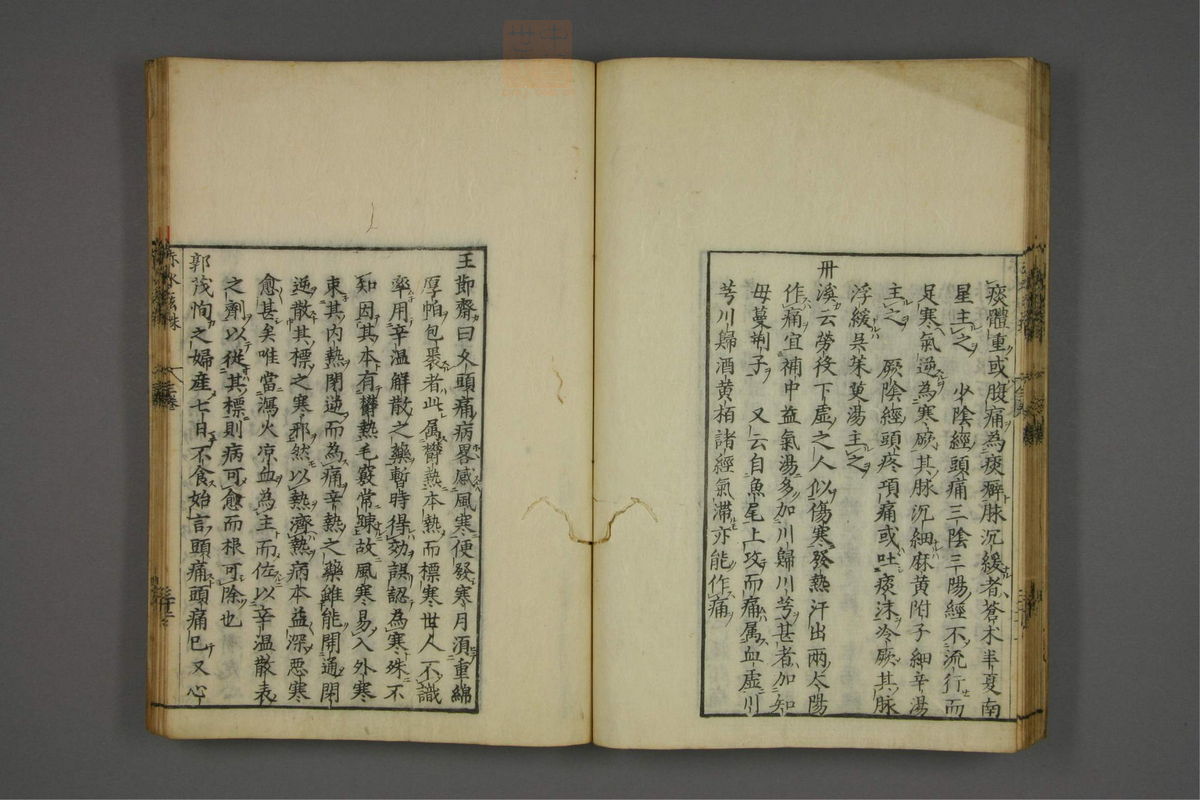 痰體重或腹痛為痰癖脉沉緩者蒼朮半夏南
星主之　少陰經頭痛三陰三陽經不流行而
足寒氣逆為寒厥其脉沉細麻黄附子細辛湯
主之　厥陰經頭疼項痛或吐痰沫冷厥其脉
浮緩吳茱萸湯主之
丹溪云勞役下虛之人似傷寒發熱汗出兩太陽
作痛宜補中益氣湯多加川歸川芎甚者加知
母蔓荊子　又云自魚尾上攻而痛属血虛川
芎川歸酒黄栢諸經氣滯亦能作痛
王節齋曰久頭痛病畧感風寒便發寒月湏重綿
厚帕包裹者此属鬱熱本熱而標寒世人不識
率用辛温解散之藥暫時得効誤認為寒殊不
知因其本有鬱熱毛竅常踈故風寒易入外寒
束其内熱閉逆而為痛辛熱之藥雖能開通閉
逆散其標之寒邪然以熱濟熱病本益深惡寒
愈甚矣唯當瀉火凉血為主而佐以辛温散表
之劑以從其標則病可愈而根可除也
郭茂恂之婦産七日不食始言頭痛頭痛已又心
赤水玄珠
三卷